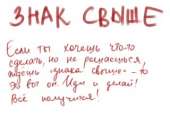 ЗНАК СВЫШЕ
Если ты хочешь что-то
сделать, но не решаешься,
ждёшь "знака свыше" - то
вот он. Иди и делай!
Всё получится!